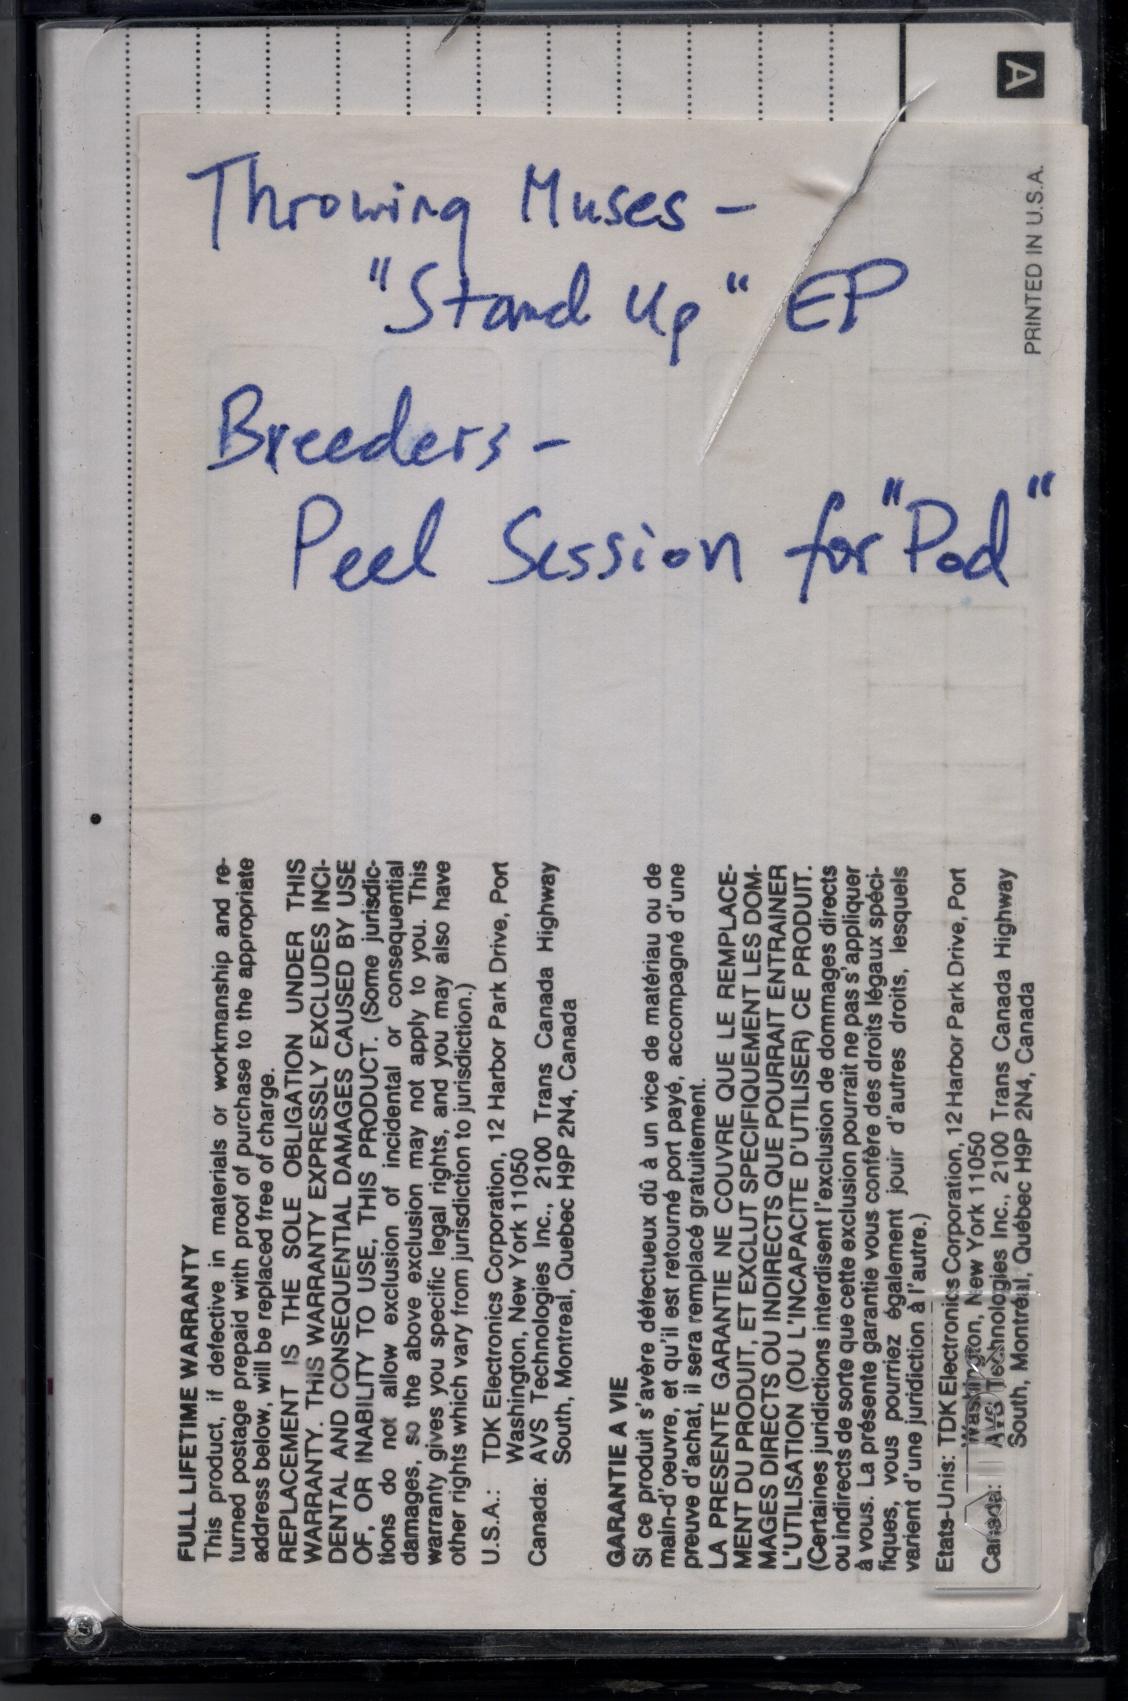 A
PRINTED IN U.S.A.
Throwing Muses –
"Stand Up" EP
Breeders –
Peel Session for "Pod"
FULL LIFETIME WARRANTY
This product, if defective in materials or workmanship and re-
turned postage prepaid with proof of purchase to the appropriate
address below, will be replaced free of charge.
REPLACEMENT IS THE SOLE OBLIGATION UNDER THIS
WARRANTY. THIS WARRANTY EXPRESSLY EXCLUDES INCI-
DENTAL AND CONSEQUENTIAL DAMAGES CAUSED BY USE
OF, OR INABILITY TO USE, THIS PRODUCT. (Some jurisdic-
tions do not allow exclusion of incidental or consequential
damages, so the above exclusion may not apply to you. This
warranty gives you specific legal rights, and you may also have
other rights which vary from jurisdiction to jurisdiction.)
U.S.A.: TDK Electronics Corporation, 12 Harbor Park Drive, Port
Washington, New York 11050
Canada: AVS Technologies Inc., 2100 Trans Canada Highway
South, Montreal, Quebec H9P 2N4, Canada
GARANTIE A VIE
Si ce produit s'avère défectueux dû à un vice de matériau ou de
main-d'oeuvre, et qu'il est retourné port payé, accompagné d'une
preuve d'achat, il sera remplacé gratuitement.
LA PRESENTE GARANTIE NE COUVRE QUE LE REMPLACE-
MENT DU PRODUIT, ET EXCLUT SPECIFIQUEMENT LES DOM-
MAGES DIRECTS OU INDIRECTS QUE POURRAIT ENTRAINER
L'UTILISATION (OU L'INCAPACITE D'UTILISER) CE PRODUIT.
(Certaines juridictions interdisent l'exclusion de dommages directs
ou indirects de sorte que cette exclusion pourrait ne pas s'appliquer
à vous. La présente garantie vous confère des droits légaux spéci-
fiques, vous pourriez également jouir d'autres droits, lesquels
varient d'une juridiction à l'autre.)
Etats-Unis: TDK Electronics Corporation, 12 Harbor Park Drive, Port
Washington, New York 11050
Canada: AVS Technologies Inc., 2100 Trans Canada Highway
South, Montréal, Québec H9P 2N4, Canada